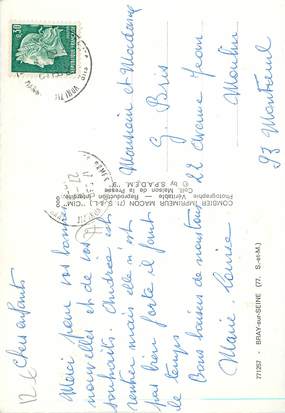 Monsieur et Madame
G. Bris
22 avenue Jean
Moulin
93 Montreuil
Chers enfants
Merci pour vos bonnes
nouvelles et de vos
souhaits. Andrée est
rentrée mais elle n'est
pas bien forte il faut
le temps
Bons baisers de nous tous
Marie Louise
COMBIER IMPRIMEUR MACON (71. S.-&-L.) "CIM"
Photographie Véritable - Reproduction Interdite
Coll. Maison de la Presse
© by S.P.A.D.E.M.
771257 - BRAY-sur-SEINE (77. S.-et-M.)
0,30
REPUBLIQUE FRANÇAISE